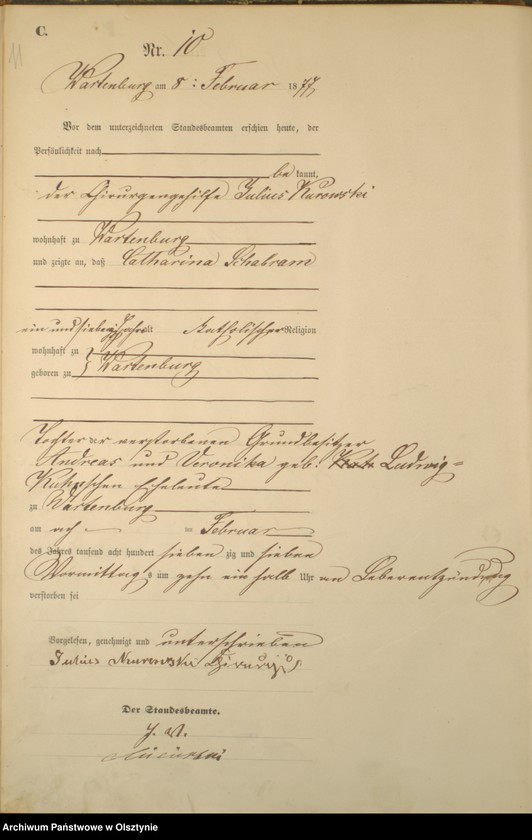 C.
11
Nr. 10
Wartenburg am 8. Februar 1877
Vor dem unterzeichneten Standesbeamten erschien heute, der
Persönlichkeit nach
be kannt,
der Chirurgengehilfe Julius Kurowski
wohnhaft zu Wartenburg
und zeigte an, daß Catharina Schabram
ein und siebenzig Jahre alt katholischer Religion
wohnhaft zu
geboren zu Wartenburg
Tochter der verstorbenen Grundbesitzer
Andreas und Veronika geb. Ludwig=
schen Eheleute
zu Wartenburg
am acht im Februar
des Jahres tausend acht hundert sieben zig und sieben
Vormittags um zehn ein halb Uhr an Leberentzündung
verstorben sei
Vorgelesen, genehmigt und unterschrieben
Julius Kurowski
Der Standesbeamte.
J. V.
Archiwum Państwowe w Olsztynie